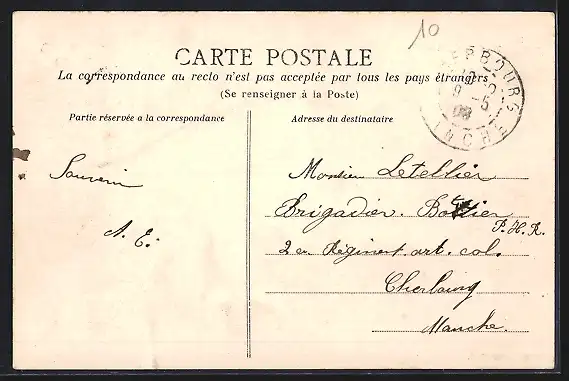 10
CARTE POSTALE
La correspondance au recto n'est pas acceptée par tous les pays étrangers
(Se renseigner à la Poste)
Partie réservée a la correspondance
Adresse du destinataire
Souvenir
A. E.
Monsieur Letellier
Brigadier. Bottier
P. H. R.
2 em Régiment art. col.
Cherbourg
Manche.